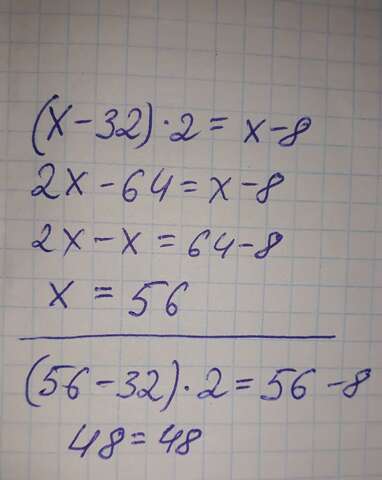 (x-32)·2=x-8
2x-64=x-8
2x-x=64-8
x=56
(56-32)·2=56-8
48=48